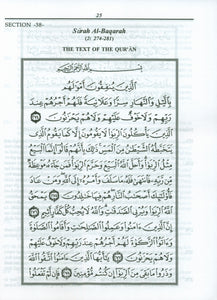 25
SECTION -38-
Sûrah Al-Baqarah
(2: 274-281)
THE TEXT OF THE QUR'ÂN
بِسْمِ اللَّهِ الرَّحْمَٰنِ الرَّحِيمِ
الَّذِينَ يُنفِقُونَ أَمْوَٰلَهُم
بِالَّيْلِ وَالنَّهَارِ سِرًّا وَعَلَانِيَةً فَلَهُمْ أَجْرُهُمْ عِندَ
رَبِّهِمْ وَلَا خَوْفٌ عَلَيْهِمْ وَلَا هُمْ يَحْزَنُونَ ٢٧٤
الَّذِينَ يَأْكُلُونَ الرِّبَوٰا لَا يَقُومُونَ إِلَّا كَمَا يَقُومُ الَّذِي
يَتَخَبَّطُهُ الشَّيْطَٰنُ مِنَ الْمَسِّ ذَٰلِكَ بِأَنَّهُمْ قَالُوا إِنَّمَا
الْبَيْعُ مِثْلُ الرِّبَوٰا وَأَحَلَّ اللَّهُ الْبَيْعَ وَحَرَّمَ الرِّبَوٰا فَمَن جَآءَهُ
مَوْعِظَةٌ مِّن رَّبِّهِ فَانتَهَىٰ فَلَهُ مَا سَلَفَ وَأَمْرُهُ إِلَى اللَّهِ وَمَنْ عَادَ
فَأُولَٰٓئِكَ أَصْحَٰبُ النَّارِ هُمْ فِيهَا خَٰلِدُونَ ٢٧٥ يَمْحَقُ
اللَّهُ الرِّبَوٰا وَيُرْبِي الصَّدَقَٰتِ وَاللَّهُ لَا يُحِبُّ كُلَّ كَفَّارٍ أَثِيمٍ
٢٧٦ إِنَّ الَّذِينَ ءَامَنُوا وَعَمِلُوا الصَّٰلِحَٰتِ وَأَقَامُوا الصَّلَوٰةَ
وَءَاتَوُا الزَّكَوٰةَ لَهُمْ أَجْرُهُمْ عِندَ رَبِّهِمْ وَلَا خَوْفٌ عَلَيْهِمْ
وَلَا هُمْ يَحْزَنُونَ ٢٧٧ يَٰٓأَيُّهَا الَّذِينَ ءَامَنُوا اتَّقُوا اللَّهَ
وَذَرُوا مَا بَقِيَ مِنَ الرِّبَوٰا إِن كُنتُم مُّؤْمِنِينَ ٢٧٨ فَإِن لَّمْ تَفْعَلُوا